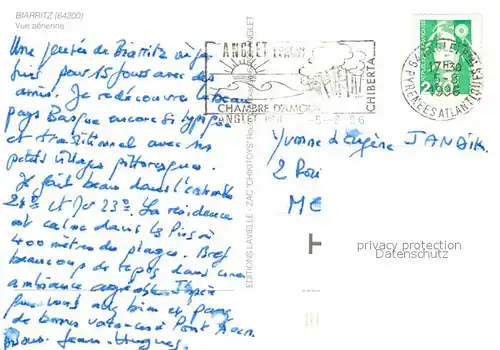 BIARRITZ (64200)
Vue aérienne
Une pensée de Biarritz où je
suis pour 15 jours avec des
amis. Je redécouvre le beau
pays Basque encore si typique
et traditionnel avec ses
petits villages pittoresques.
Il fait beau dans l'ensemble
23°. La résidence
est calme dans les Pins à
400 mètres des plages. Bref
beaucoup de repos dans une
ambiance agréable. J'espère
que vous allez bien et
de bonnes vacances à Pont Aven.
Jean-Hugues
EDITIONS LAVIELLE - ZAC
ANGLET
CHAMBRE D'AMOUR
ANGLET
CHIBERTA
5-8-96
PYRENEES ATLANTIQUES
17H30
5-8
1996
Yvonne et Eugène JANAIK
2
privacy protection
Datenschutz